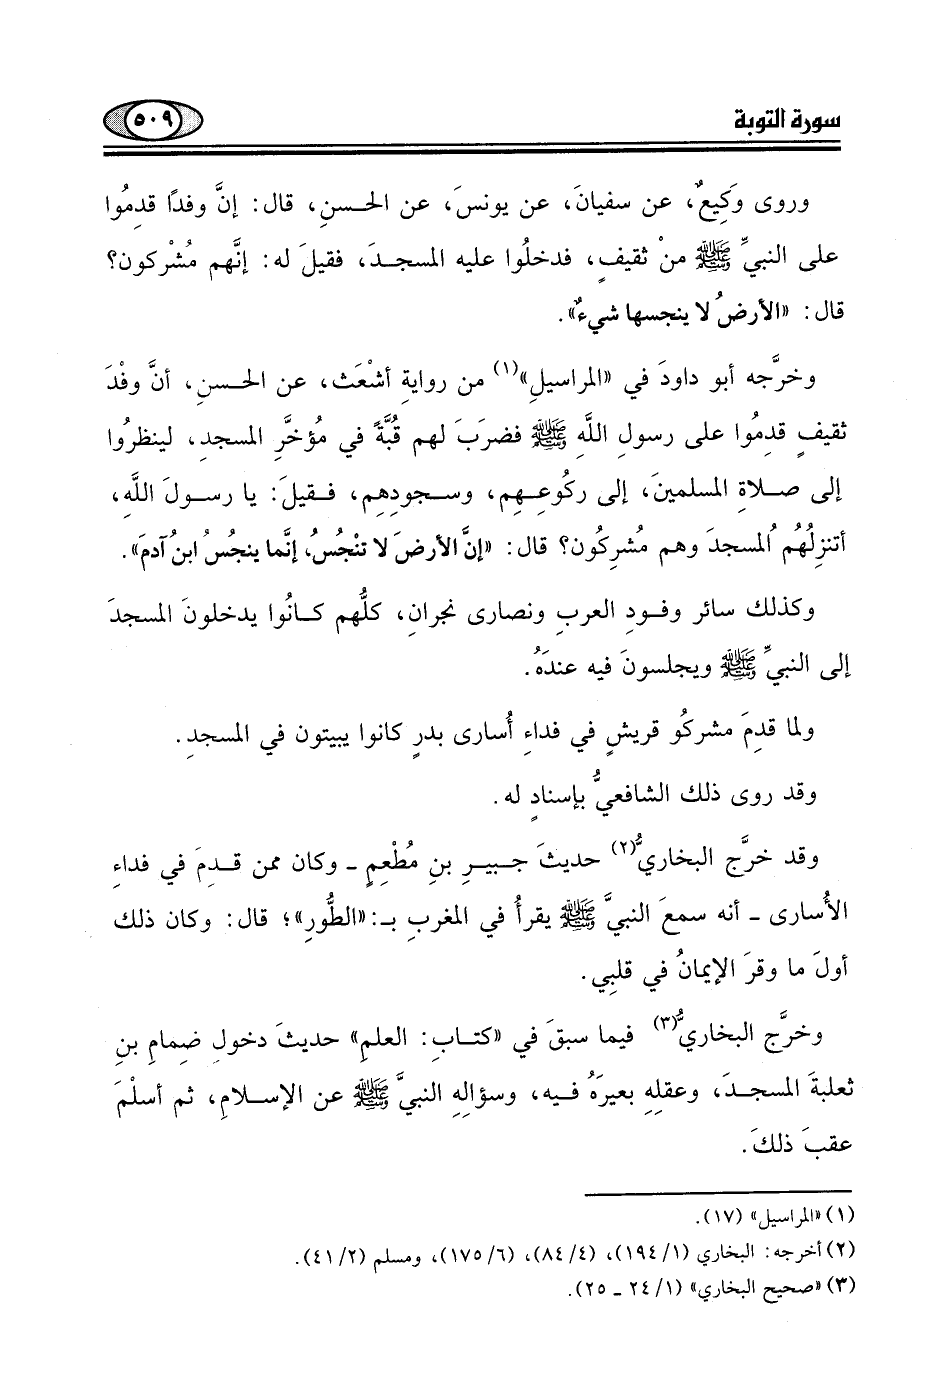 سورة التوبة
٥٠٩
وروى وَكِيعٌ، عن سفيانَ، عن يونسَ، عن الحسنِ، قال: إنَّ وفدًا قدِمُوا
على النبيِّ ﷺ منْ ثقيفٍ، فدخلُوا عليه المسجدَ، فقيلَ له: إنَّهم مُشْركون؟
قال: «الأرضُ لا ينجسها شيءٌ».
وخرَّجه أبو داودَ في «المراسيلِ»(١) من روايةِ أشْعَث، عن الحسنِ، أنَّ وفْدَ
ثقيفٍ قدِمُوا على رسولِ اللَّهِ ﷺ فضرَبَ لهم قُبَّةً في مؤخَّرِ المسجدِ، لينظرُوا
إلى صلاةِ المسلمينَ، إلى ركُوعِهِم، وسجودِهِم، فقيلَ: يا رسولَ اللَّهِ،
أتنزِلُهُم المسجدَ وهم مشرِكُون؟ قال: «إنَّ الأرضَ لا تنْجُسُ، إنَّما ينجُسُ ابنُ آدمَ».
وكذلك سائر وفودِ العربِ ونصارى نجرانِ، كلُّهم كانُوا يدخلونَ المسجدَ
إلى النبيِّ ﷺ ويجلسونَ فيه عندَهُ.
ولما قدِمَ مشركُو قريشٍ في فداءِ أُسارى بدرٍ كانوا يبيتون في المسجدِ.
وقد روى ذلك الشافعيُّ بإسنادٍ له.
وقد خرَّج البخاريُّ(٢) حديثَ جبيرِ بنِ مُطْعِمٍ - وكان ممن قدِمَ في فداءِ
الأُسارى - أنه سمعَ النبيَّ ﷺ يقرأُ في المغربِ بـ: «الطُّورِ»؛ قال: وكان ذلك
أولَ ما وقرَ الإيمانُ في قلبِي.
وخرَّج البخاريُّ(٣) فيما سبقَ في «كتابِ: العلمِ» حديثَ دخولِ ضِمامِ بنِ
ثعلبةَ المسجدَ، وعقلِهِ بعيرَهُ فيه، وسؤالِهِ النبيَّ ﷺ عن الإسلامِ، ثم أسلْمَ
عقبَ ذلكَ.
(١) «المراسيل» (١٧).
(٢) أخرجه: البخاري (١/ ١٩٤)، (٤/ ٨٤)، (٦/ ١٧٥)، ومسلم (٢/ ٤١).
(٣) «صحيح البخاري» (١/ ٢٤ - ٢٥).